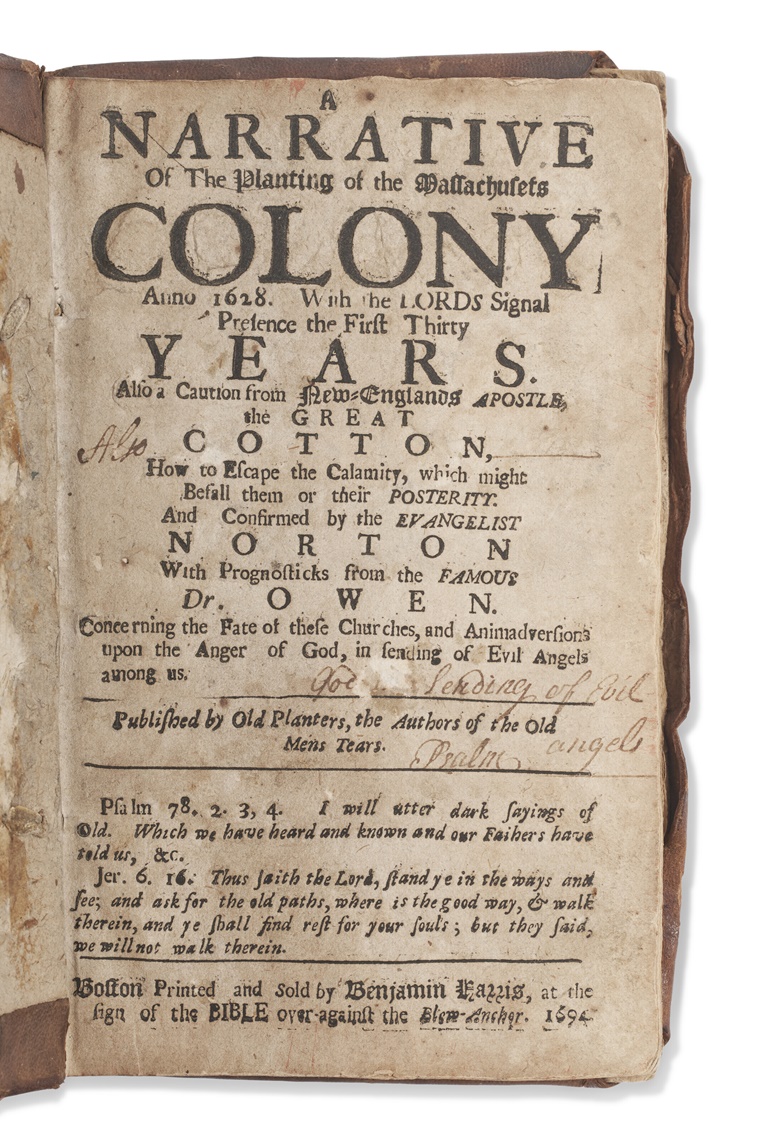 A
NARRATIVE
Of The Planting of the Maſſachuſets
COLONY
Anno 1628. With the LORDS Signal
Preſence the Firſt Thirty
YEARS.
Alſo a Caution from New-Englands APOSTLE,
the GREAT
Also COTTON,
How to Eſcape the Calamity, which might
Befall them or their POSTERITY.
And Confirmed by the EVANGELIST
NORTON
With Prognoſticks from the FAMOUS
Dr. OWEN.
Concerning the Fate of theſe Churches, and Animadverſions
upon the Anger of God, in ſending of Evil Angels
among us.
God Sending of Evil
Publiſhed by Old Planters, the Authors of the Old
Mens Tears.
Psalm angels
Pſalm 78. 2. 3, 4. I will utter dark ſayings of
Old. Which we have heard and known and our Fathers have
told us, &c.
Jer. 6. 16. Thus ſaith the Lord, ſtand ye in the ways and
ſee; and ask for the old paths, where is the good way, & walk
therein, and ye ſhall find reſt for your ſouls; but they ſaid,
we will not walk therein.
Boſton Printed and Sold by Benjamin Harris, at the
ſign of the BIBLE over-againſt the Blew-Anchor.